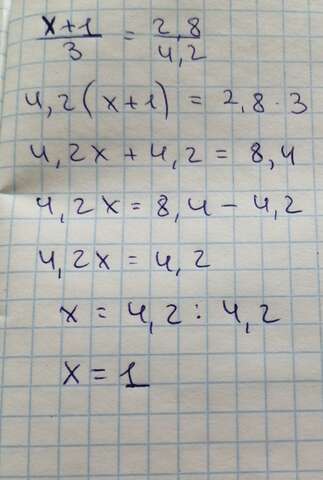 x+1/3 = 2,8/4,2
4,2(x+1) = 2,8·3
4,2x+4,2 = 8,4
4,2x = 8,4 - 4,2
4,2x = 4,2
x = 4,2 : 4,2
x = 1